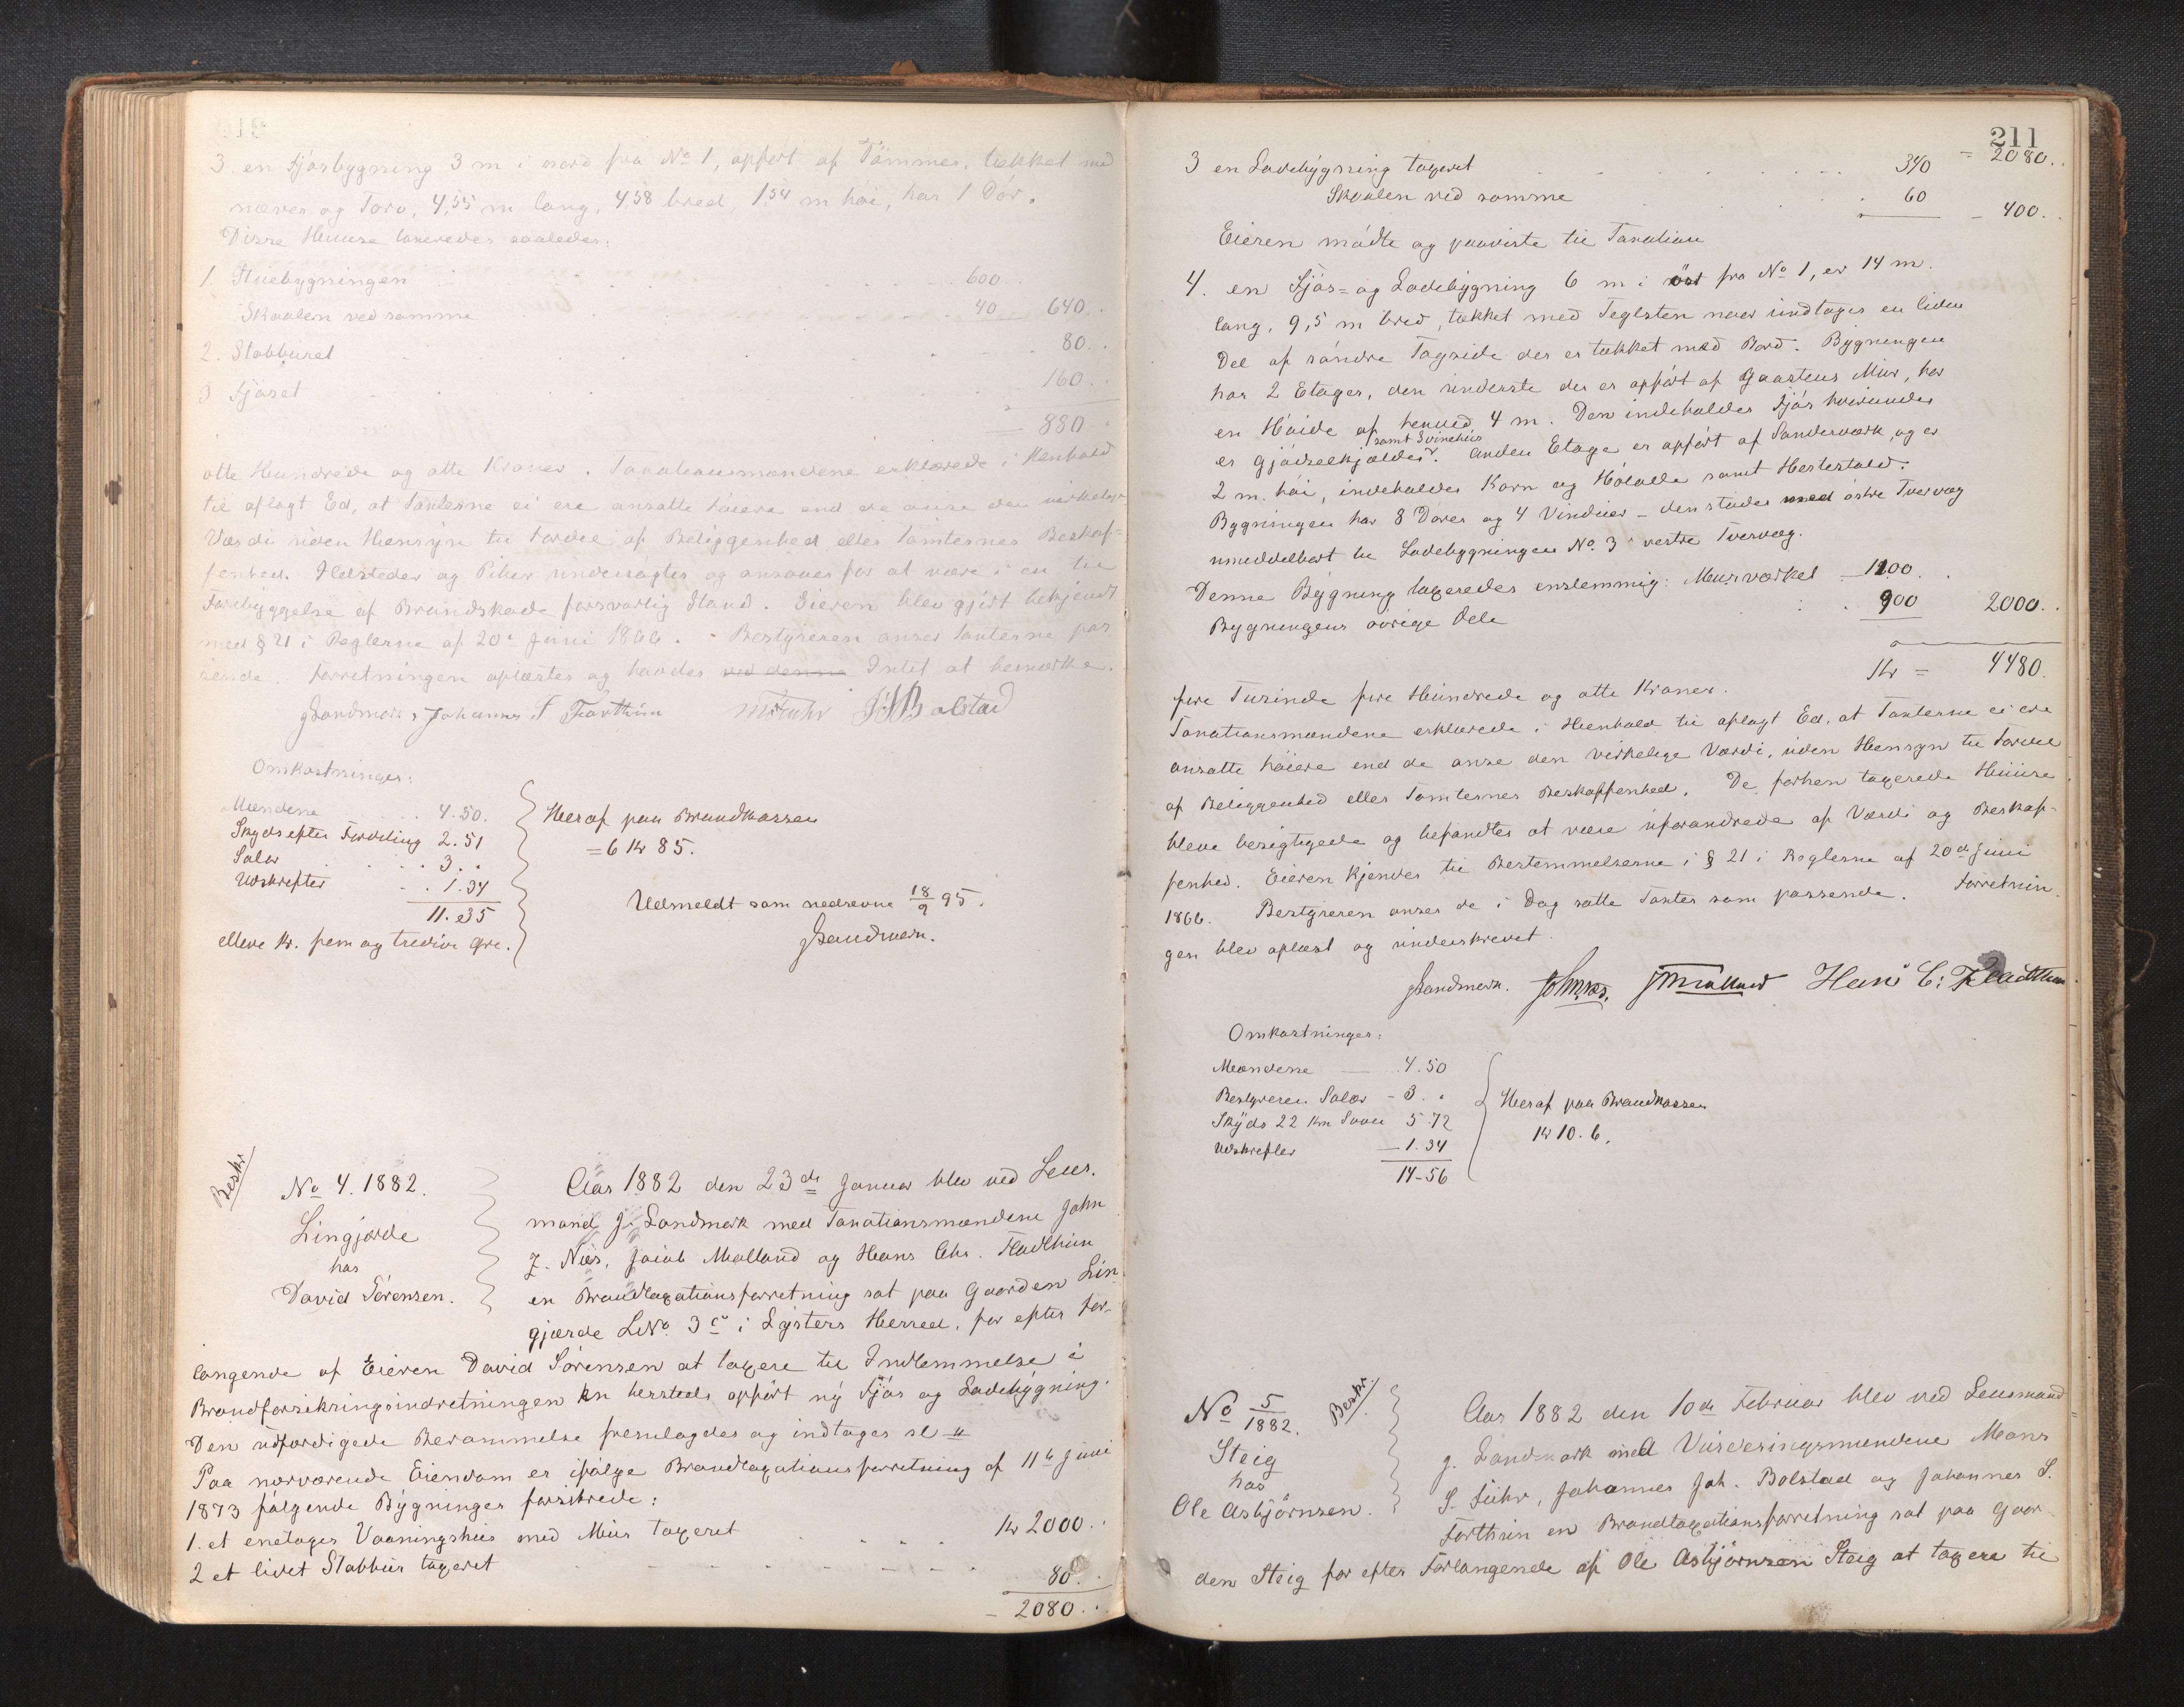 3. en Fjøsbygning 3 m i nord fra No 1, opført af Tømmer, tækket med
næver og Torv, 4,55 m lang, 4,58 bred, 1,54 m høi, har 1 Dør.
Disse Huuse taxeredes saaledes:
1. Stuebygningen 600
Skaalen ved samme 40 640.
2. Stabburet 80.
3 Fjøset 160.
880
otte Hundrede og otte Kroner. Taxationsmændene erklærede i Henhold
til aflagt Ed, at Taxterne ei ere ansatte høiere end de anse den virkelige
Værdi uden Hensyn til Fordel af Beliggenhed eller Tomternes Beskaf-
fenhed. Ildsteder og Piber undersøgtes og ansaaes for at være i en til
Forebyggelse af Brandskade forsvarlig Stand. Eieren blev gjort bekjendt
med § 21 i Reglerne af 20de Juni 1866. - Bestyreren anser Taxterne pas-
sende. Forretningen oplæstes og havdes ved denne Intet at bemærke.
JLandmark, Johannes S Forthun MSFuhr JJBolstad
Omkostninger:
Mændene 4.50.
Skyds efter Fordeling 2.51
Salær 3. .
Udskrifter 1.34
11.35
elleve Kr. fem og tredive Øre.
Heraf paa Brandkassen
= 6 Kr 85.
Udmeldt som nedrevne 18/9 95.
JLandmark.
Beskr
No 4. 1882.
Lingjerde
hos
David Sørensen.
Aar 1882 den 23de Januar blev ved Lens-
mand J. Landmark med Taxationsmændene John
J. Næs, Jacob Molland og Hans Chr. Fladhun
en Brandtaxationsforretning sat paa Gaarden Lin-
gjærde LNo 3c i Lysters Herred, for efter For-
langende af Eieren David Sørensen at taxere til Indlemmelse i
Brandforsikringsindretningen en hersteds opført ny Fjøs og Ladebygning.
Den udfærdigede Berammelse fremlagdes og indtages sl
Paa nærværende Eiendom er ifølge Brandtaxationsforretning af 11te Juni
1873 følgende Bygninger forsikrede:
1. et enetages Vaaningshus med Muur taxeret Kr 2000.
2 et lidet Stabbur taxeret 80.
2080.
211
= 2080.
3 en Ladebygning taxeret 340
Skaalen ved samme 60 400.
Eieren mødte og paaviste til Taxation
4. en Fjøs- og Ladebygning 6 m i øst fra No 1, er 14 m.
lang, 9,5 m bred, tækket med Teglsten naar undtages en liden
Del af søndre Tagside der er tækket med Bord. Bygningen
har 2 Etager, den underste der er opført af Graastens Muur, har
en Høide af henved 4 m. Den indeholder Fjøs hvorunder
er Gjødselkjælder samt Svinehus. Anden Etage er opført af Sandværk, og er
2 m. høi, indeholder Korn og Hølade samt Hestestald.
Bygningen har 8 Døre og 4 Vinduer - den støder med østre Tvervæg
umiddelbart til Ladebygningen No 3's vestre Tvervæg.
Denne Bygning taxeredes enstemmig: Muurværket 1100.
Bygningens øvrige Dele 900 2000.
Kr = 4480.
fire Tusinde fire Hundrede og otte Kroner.
Taxationsmændene erklærede i Henhold til aflagt Ed, at Taxterne ei ere
ansatte høiere end de anse den virkelige Værdi, uden Hensyn til Fordel
af Beliggenhed eller Tomternes Beskaffenhed. De forhen taxerede Huuse
bleve besigtigede og befandtes at være uforandrede af Værdi og Beskaf-
fenhed. Eieren kjendes til Bestemmelserne i § 21 i Reglerne af 20de Juni
1866. Bestyreren anser de i Dag satte Taxter som passende. Forretnin-
gen blev oplæst og underskrevet.
JLandmark. JJohnNæs. JMolland Hans C: Fladhun
Omkostninger:
Mændene 4.50
Bestyreren Salær - 3. .
Skyds 22 Km 5.72
Udskrifter 1.34
14-56
Heraf paa Brandkassen
Kr 10.6.
No 5/1882. Beskr.
Steig
hos
Ole Asbjørnsen.
Aar 1882 den 10de Februar blev ved Lensmand
J. Landmark med Vurderingsmændene Mons
S. Fuhr, Johannes Joh. Bolstad og Johannes S.
Forthun en Brandtaxationsforretning sat paa Gaar-
den Steig for efter Forlangende af Ole Asbjørnsen Steig at taxere til